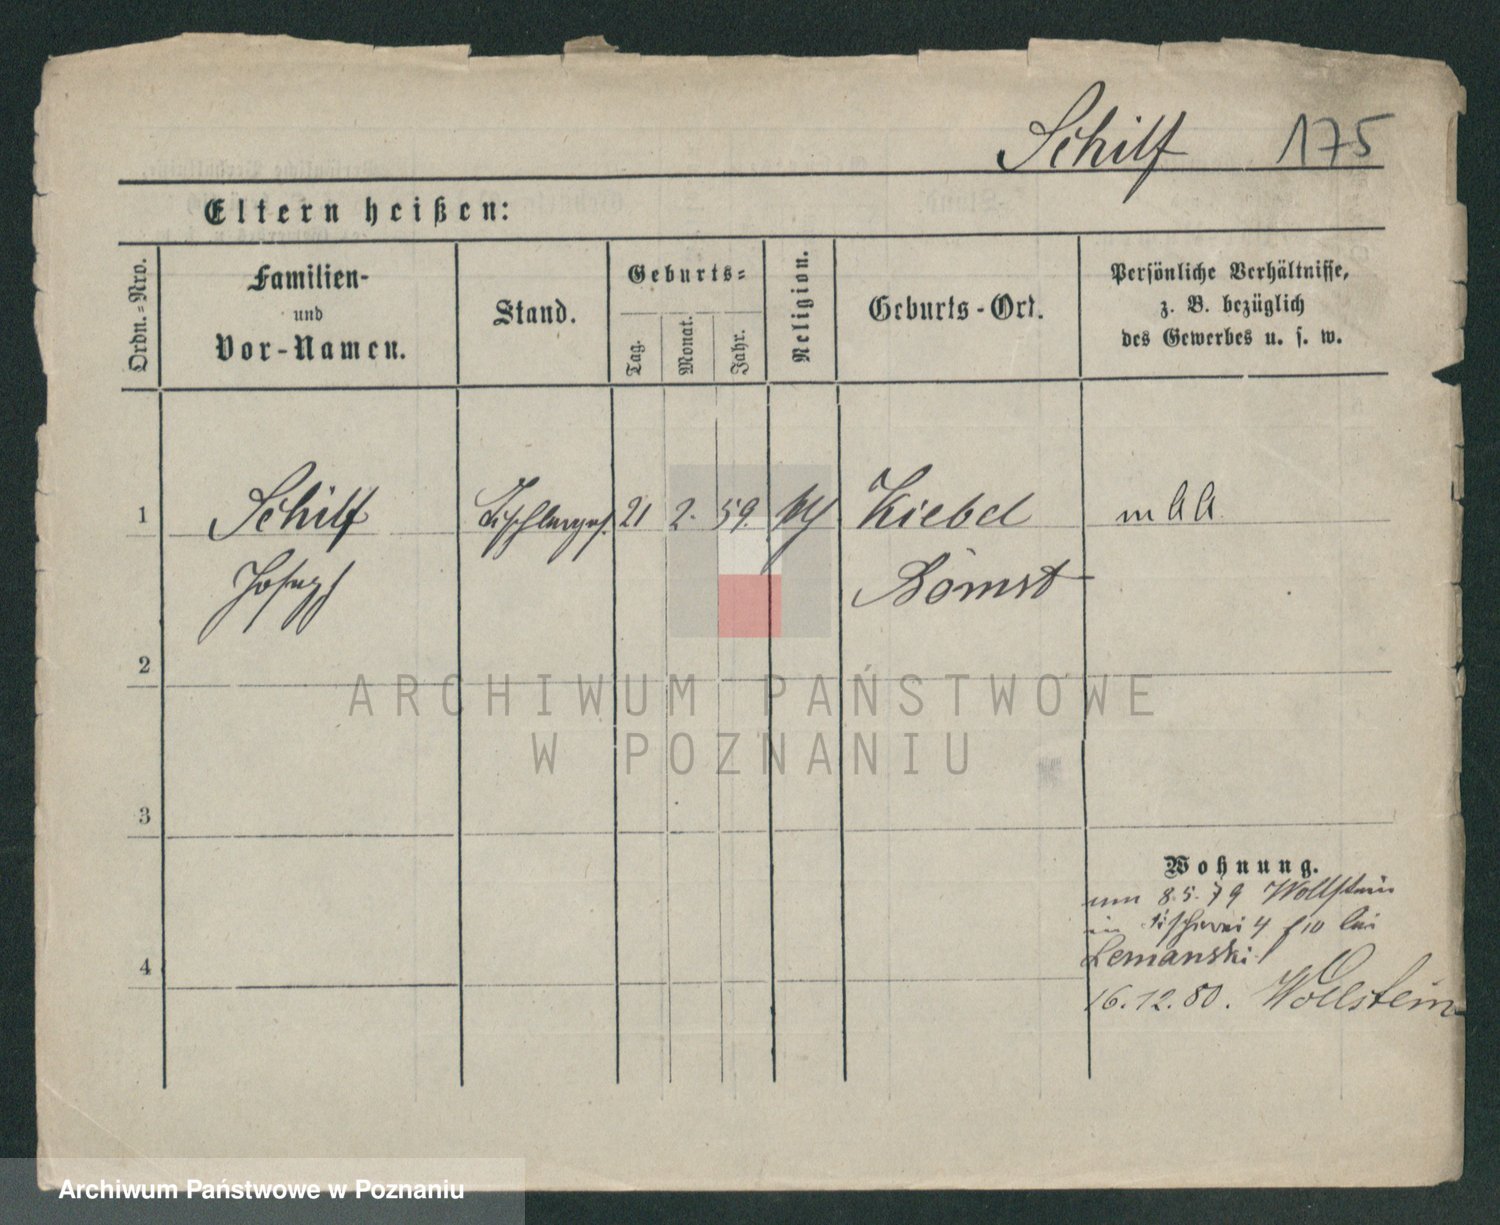 Schilf 175
Eltern heißen:
Ordn.-Nro.
Familien-
und
Vor-Namen.
Stand.
Geburts-
Tag.
Monat.
Jahr.
Religion.
Geburts-Ort.
Persönliche Verhältnisse,
z. B. bezüglich
des Gewerbes u. s. w.
1 Schilf Tischlerges. 21 2. 59. Kiebel
Joseph Bomst
2
3
Wohnung.
8.5.79 Wollstein
4 bei
Lemanski
4
16.12.80. Wollstein
ARCHIWUM PAŃSTWOWE
W POZNANIU
Archiwum Państwowe w Poznaniu